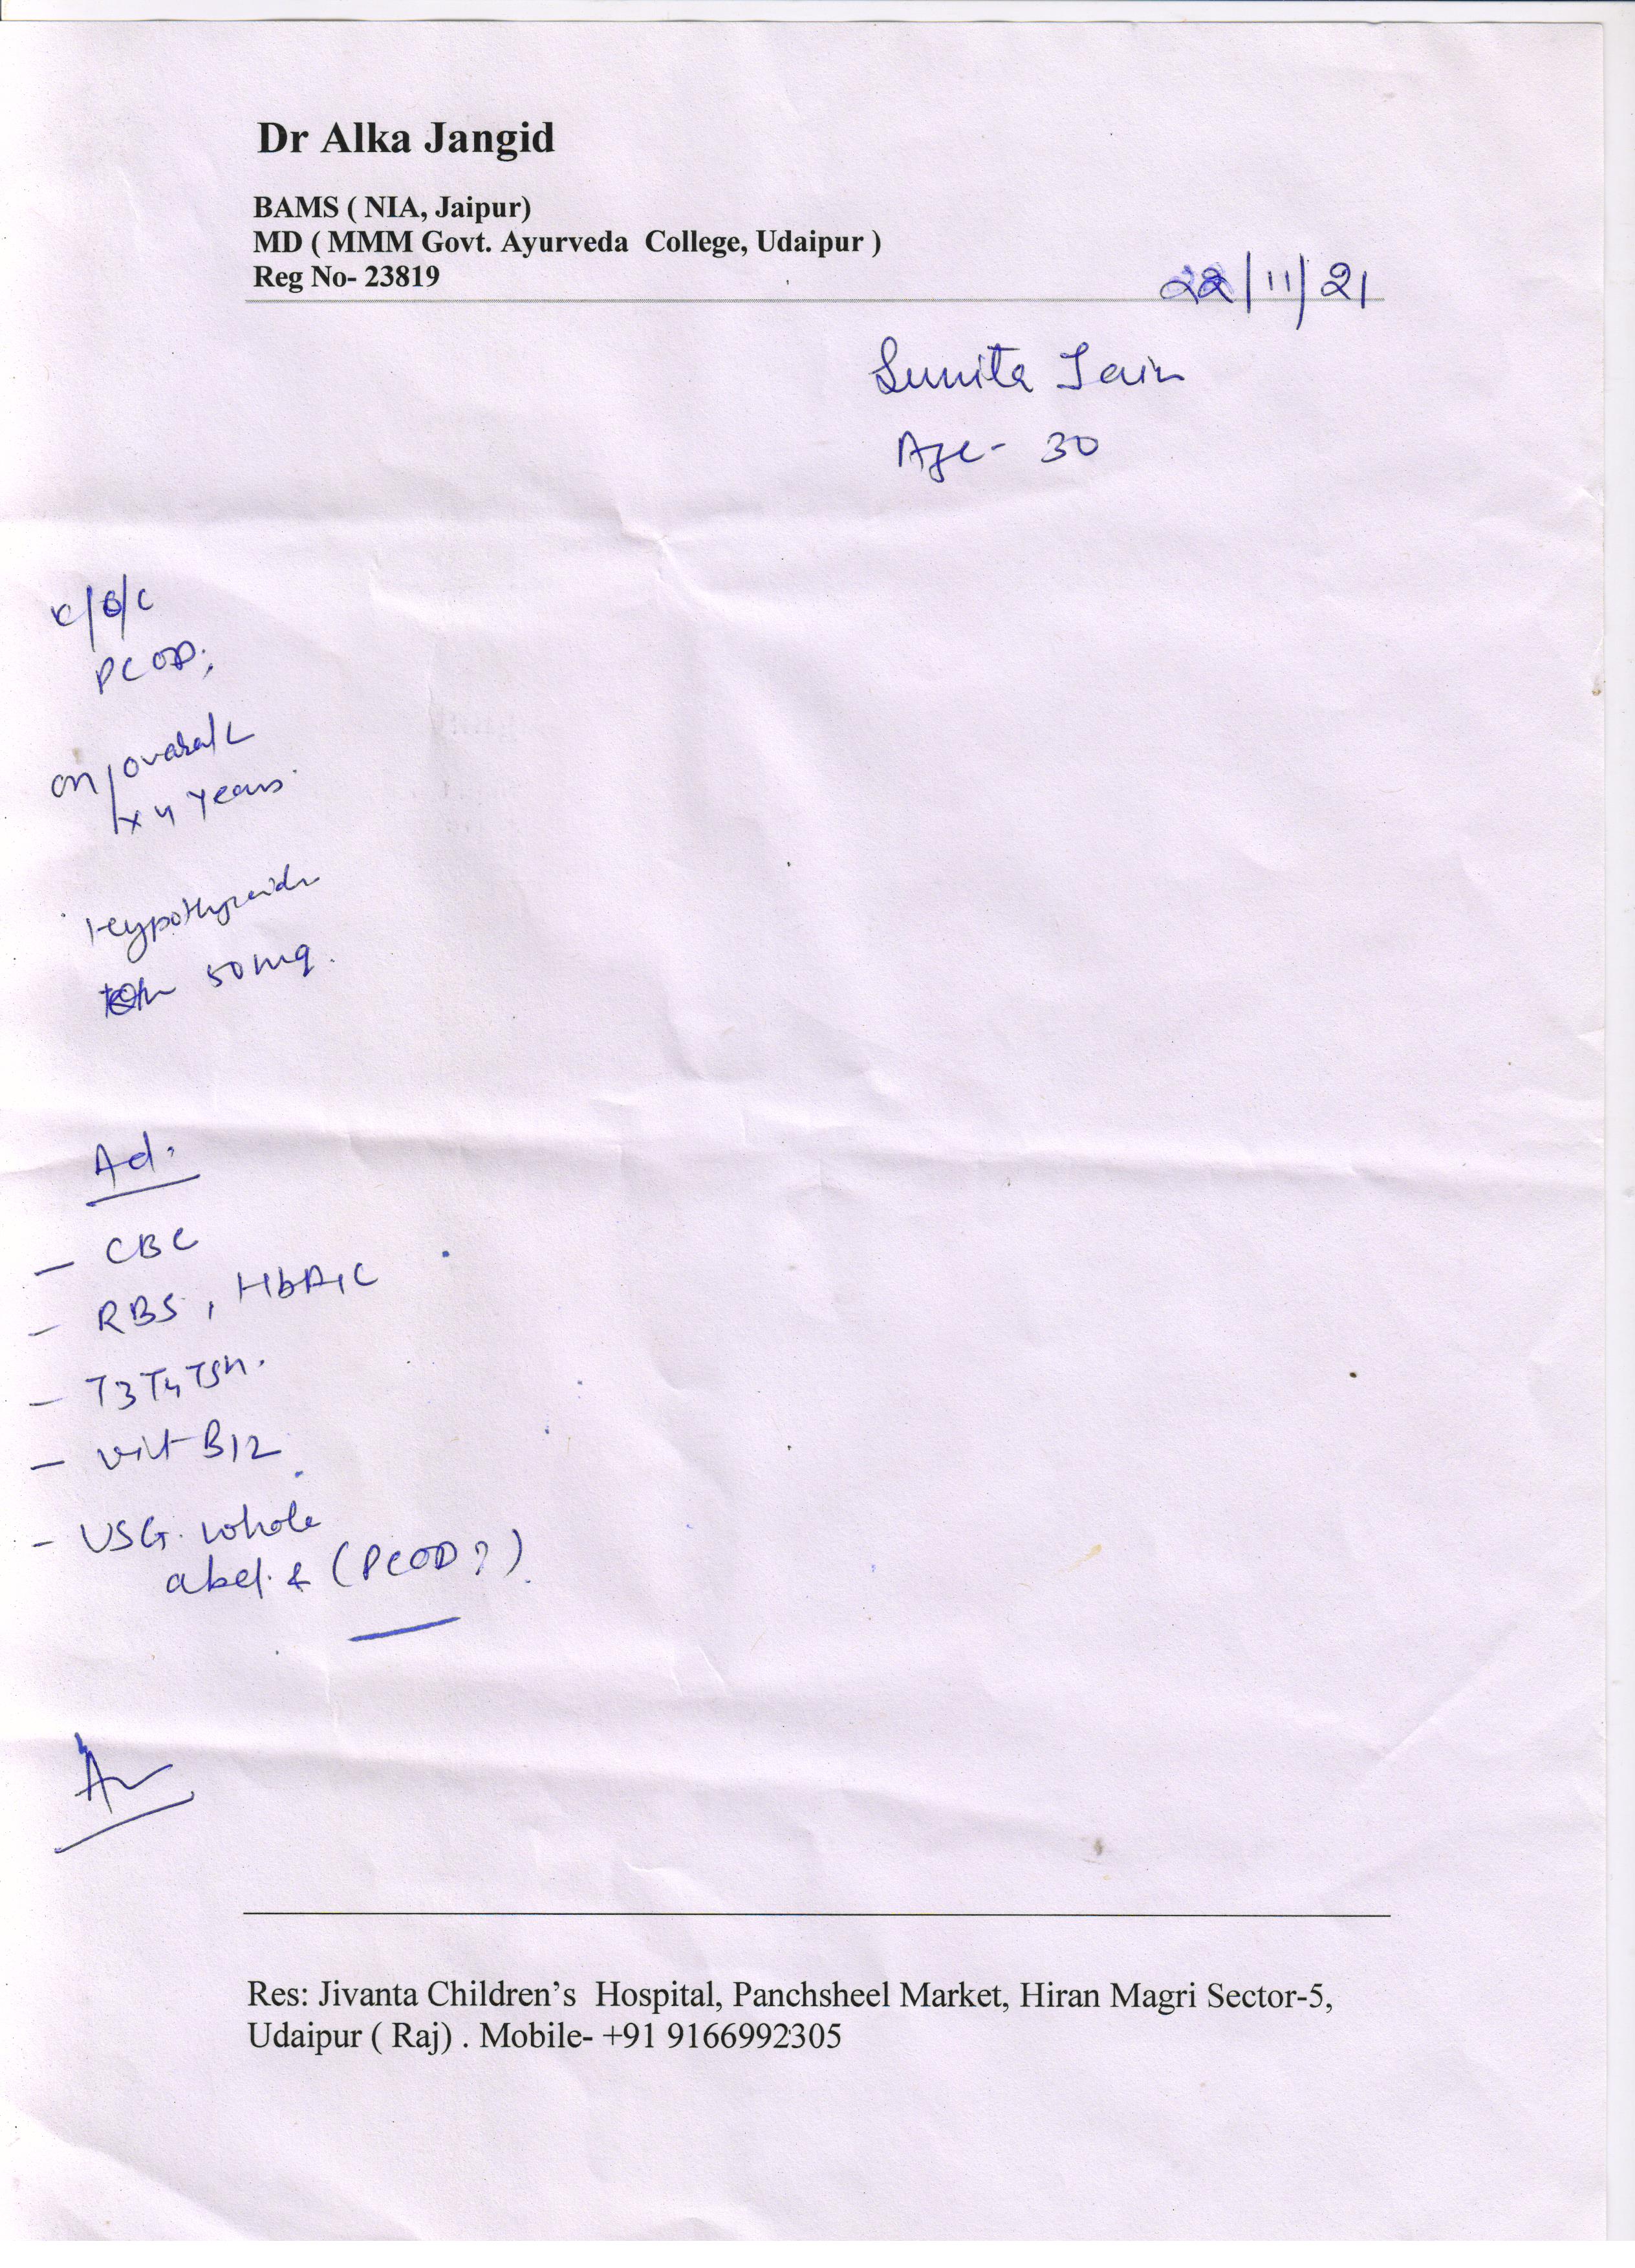 Dr Alka Jangid
BAMS ( NIA, Jaipur)
MD ( MMM Govt. Ayurveda College, Udaipur )
Reg No- 23819
22/11/21
Sunita Jain
Age- 30
K/O/C
PCOD;
on ovaral L
x 4 years.
50 mg.
Ad.
- CBC
- RBS, HbA1C
- T3 T4 TSH.
- vit B12
- USG. whole
abd. & (PCOD?).
Res: Jivanta Children’s Hospital, Panchsheel Market, Hiran Magri Sector-5,
Udaipur ( Raj) . Mobile- +91 9166992305